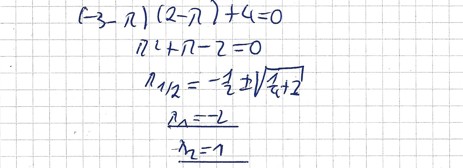 (-3-λ)(2-λ)+4=0
λ²+λ-2=0
λ₁/₂ = -1/2 ± √(1/4+2)
λ₁=-2
λ₂=1